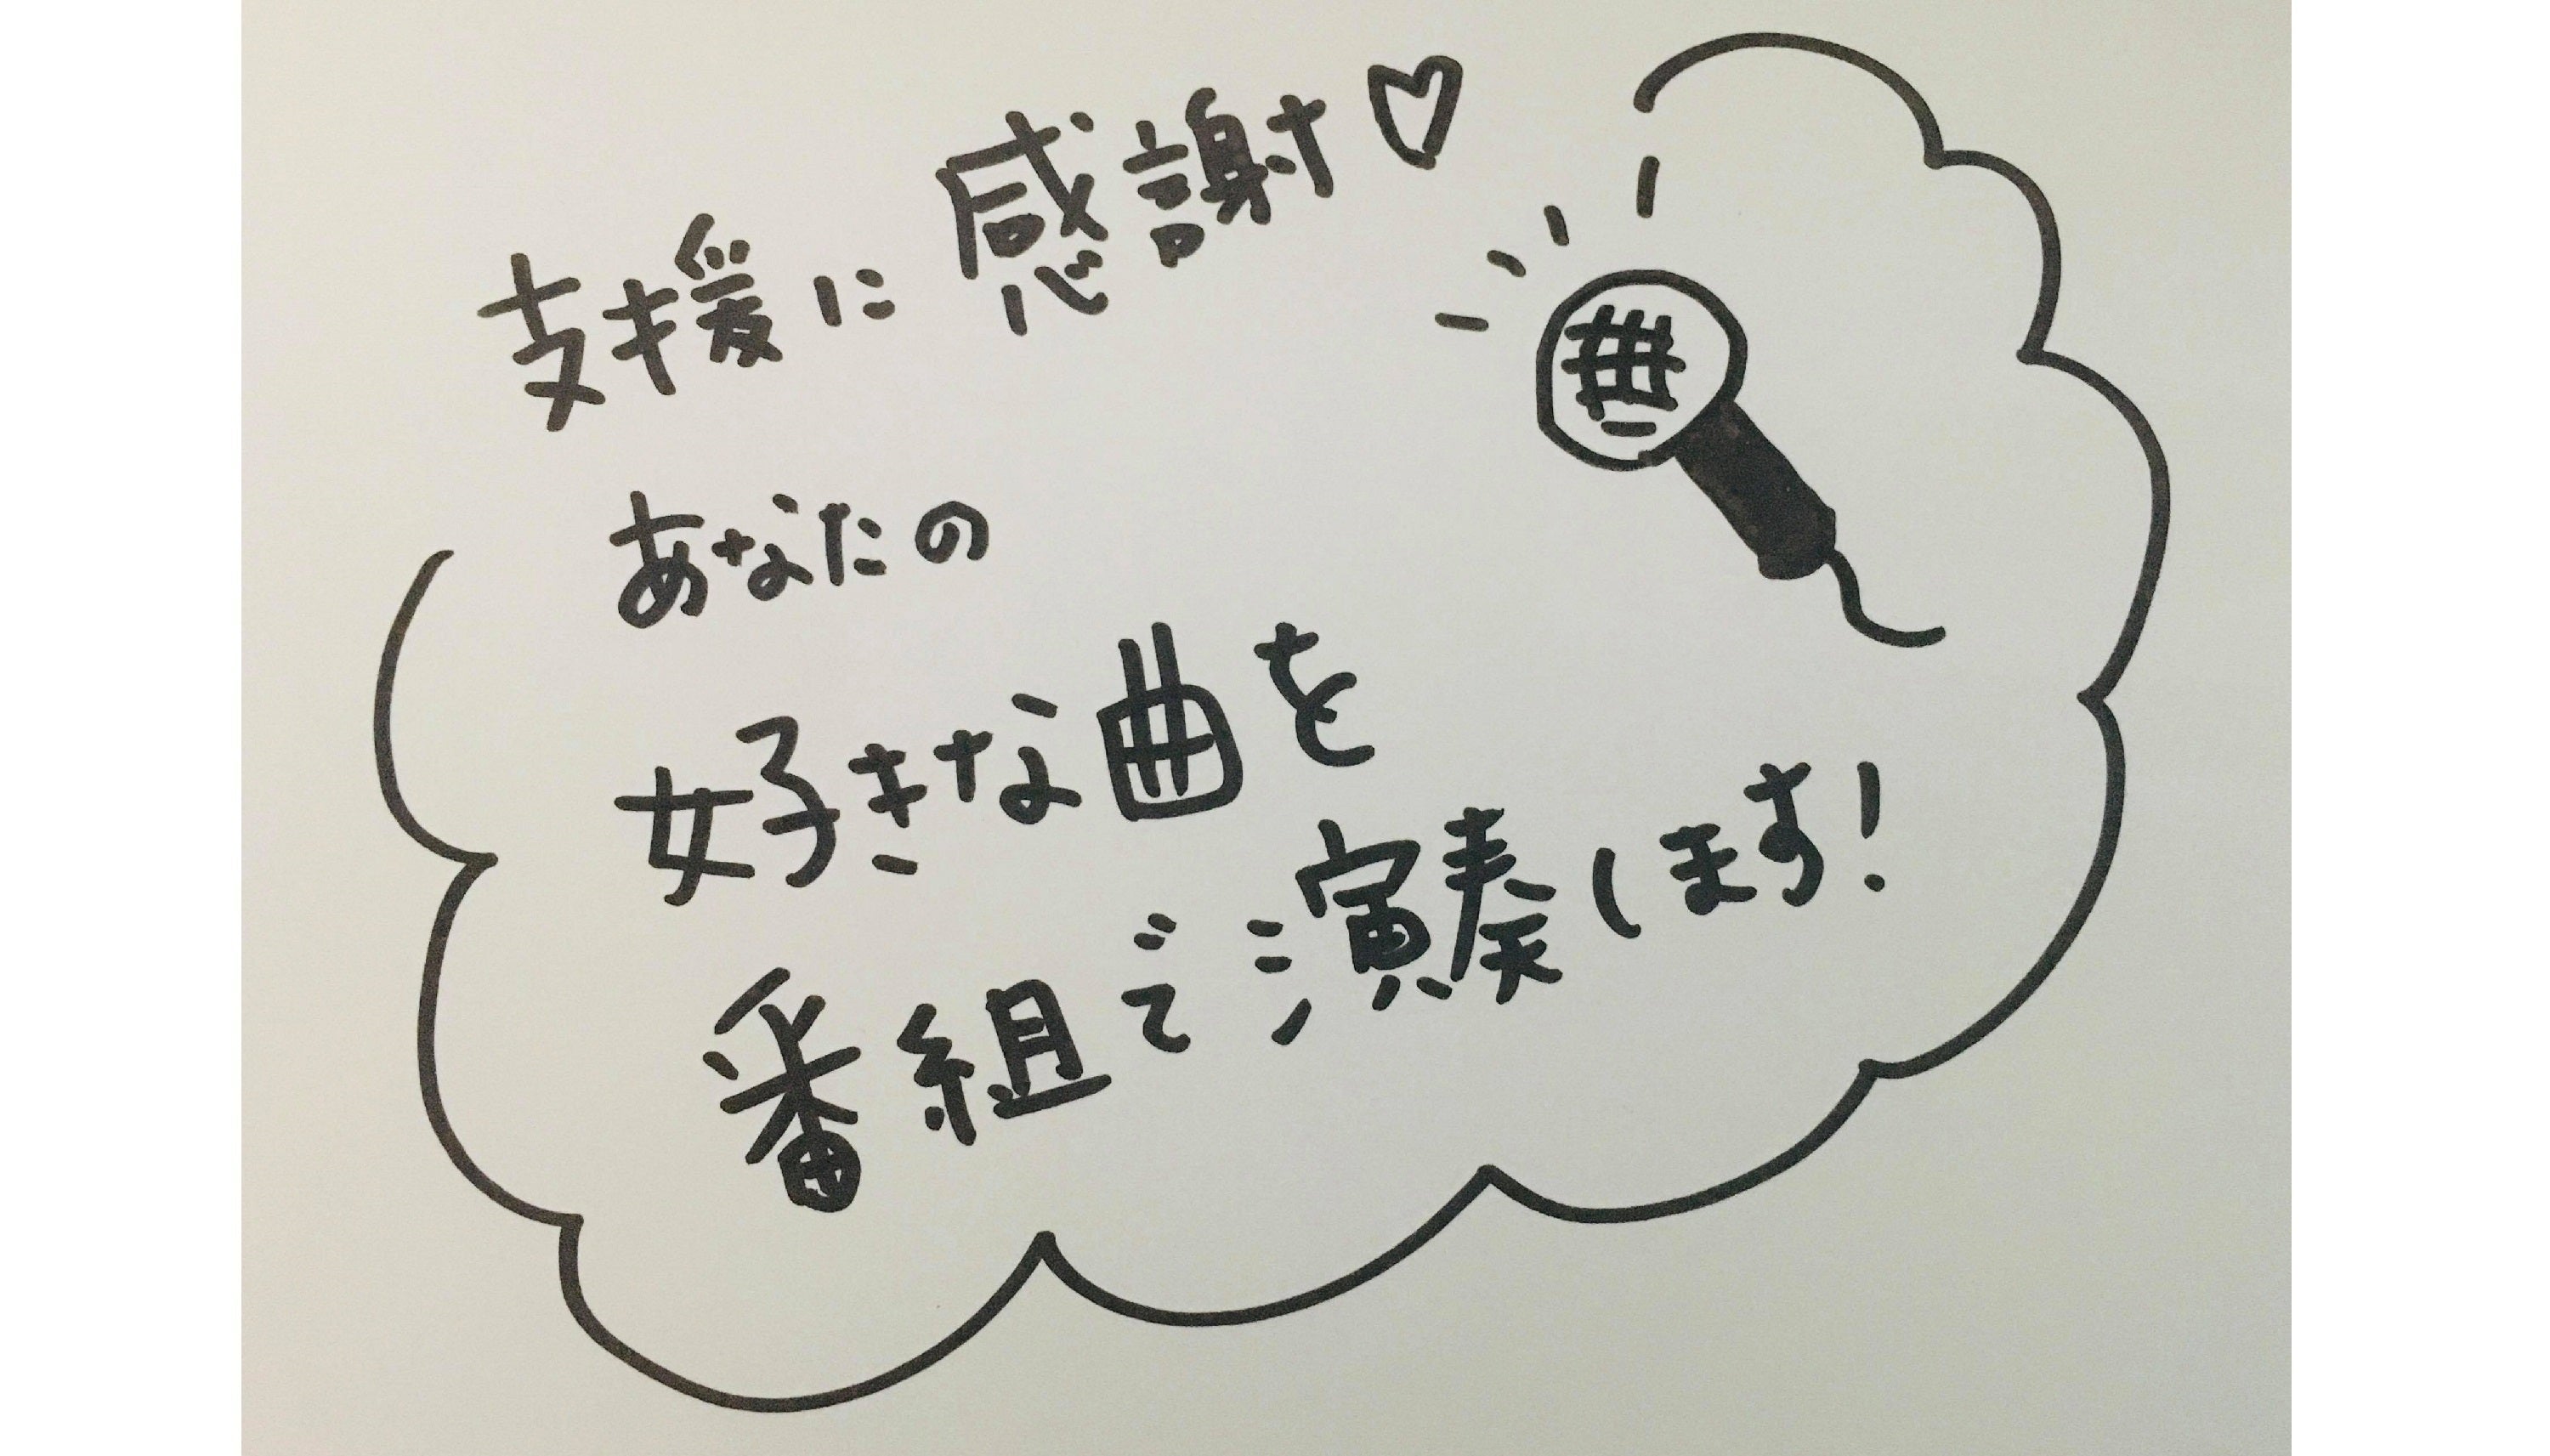 支援に感謝♡
あなたの
好きな曲を
番組で演奏します!